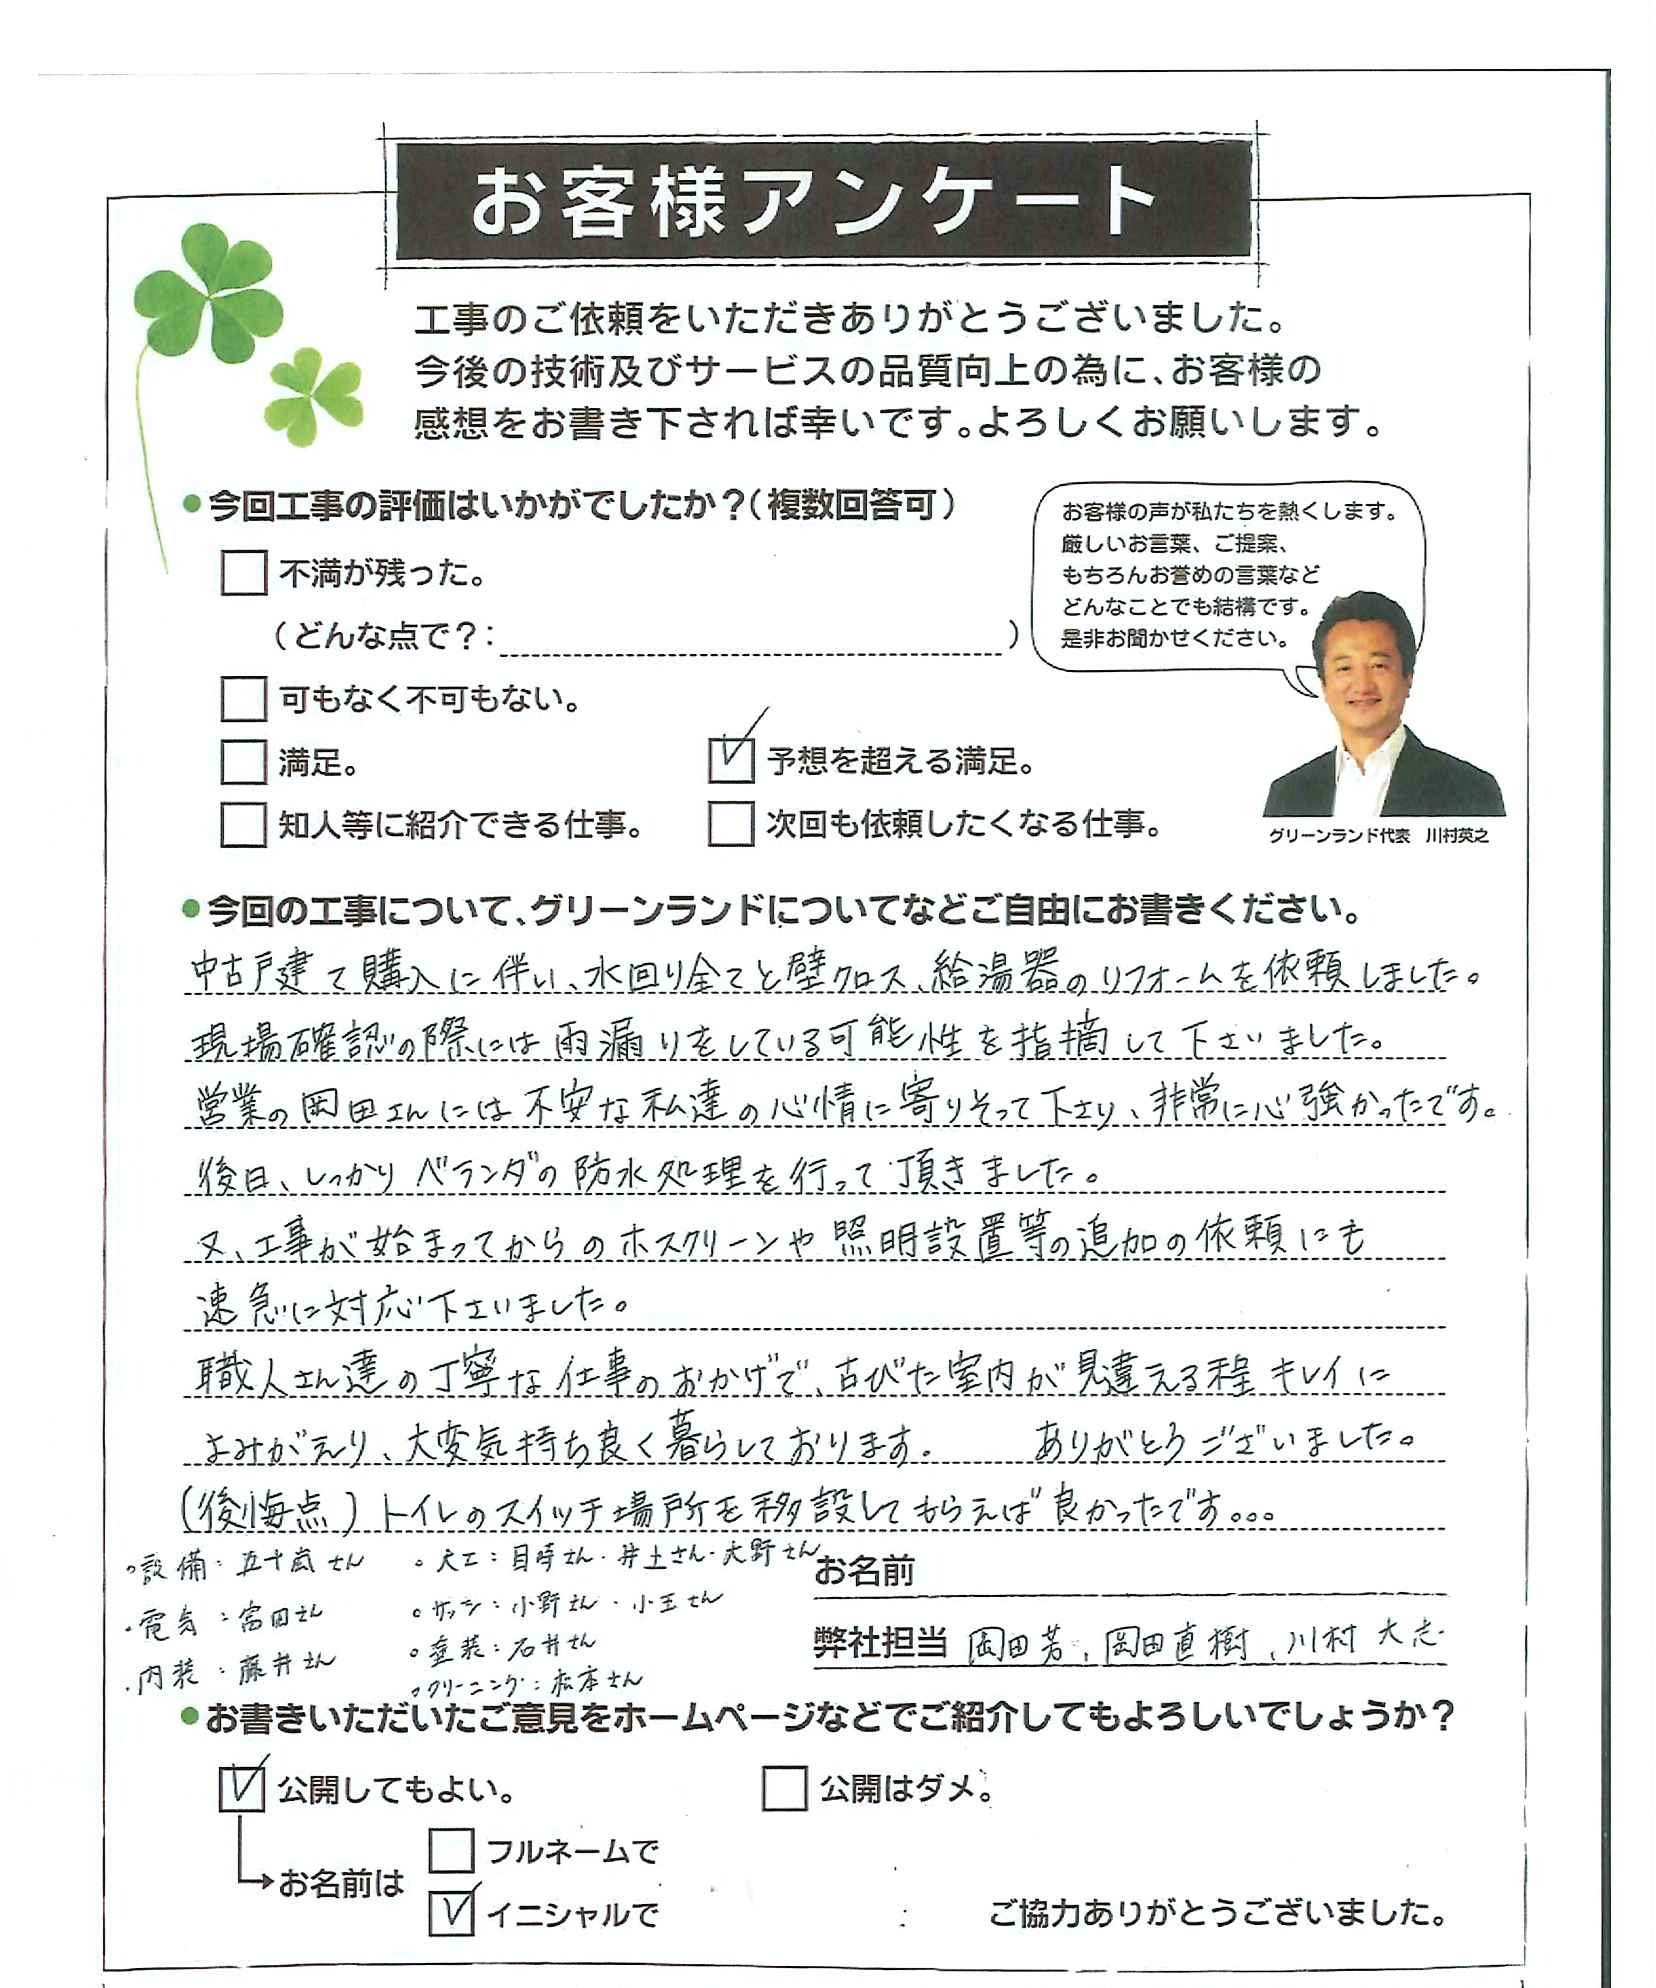 お客様アンケート
工事のご依頼をいただきありがとうございました。
今後の技術及びサービスの品質向上の為に、お客様の
感想をお書き下されば幸いです。よろしくお願いします。
●今回工事の評価はいかがでしたか？（複数回答可）
お客様の声が私たちを熱くします。
厳しいお言葉、ご提案、
もちろんお誉めの言葉など
どんなことでも結構です。
是非お聞かせください。
不満が残った。
（どんな点で？：　）
可もなく不可もない。
満足。
予想を超える満足。
知人等に紹介できる仕事。
次回も依頼したくなる仕事。
グリーンランド代表　川村英之
●今回の工事について、グリーンランドについてなどご自由にお書きください。
中古戸建て購入に伴い、水回り全てと壁クロス、給湯器のリフォームを依頼しました。
現場確認の際には雨漏りをしている可能性を指摘して下さいました。
営業の岡田さんには不安な私達の心情に寄りそって下さり、非常に心強かったです。
後日、しっかりベランダの防水処理を行って頂きました。
又、工事が始まってからのホスクリーンや照明設置等の追加の依頼にも
速急に対応下さいました。
職人さん達の丁寧な仕事のおかげで、古びた室内が見違える程キレイに
よみがえり、大変気持ち良く暮らしております。　ありがとうございました。
(後悔点)トイレのスイッチ場所を移設してもらえば良かったです。。。
・設備：五十嵐さん
・大工：目時さん・井土さん・大野さん
お名前
・電気：富田さん
・サッシ：小野さん・小玉さん
・塗装：石井さん
弊社担当 岡田芳、岡田直樹、川村大志
・内装：藤井さん
・クリーニング：松本さん
●お書きいただいたご意見をホームページなどでご紹介してもよろしいでしょうか？
公開してもよい。
公開はダメ。
お名前は
フルネームで
イニシャルで
ご協力ありがとうございました。